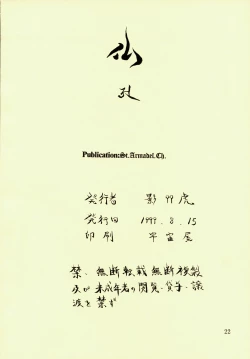 仙
Publication:St.Armadel.Ch.
発行者 影 99 虎
発行日 1999. 8. 15
印刷 平 屋
禁・無断転載 無断複製
及び 未成年者の閲覧・貸与・譲
渡を禁ず
22